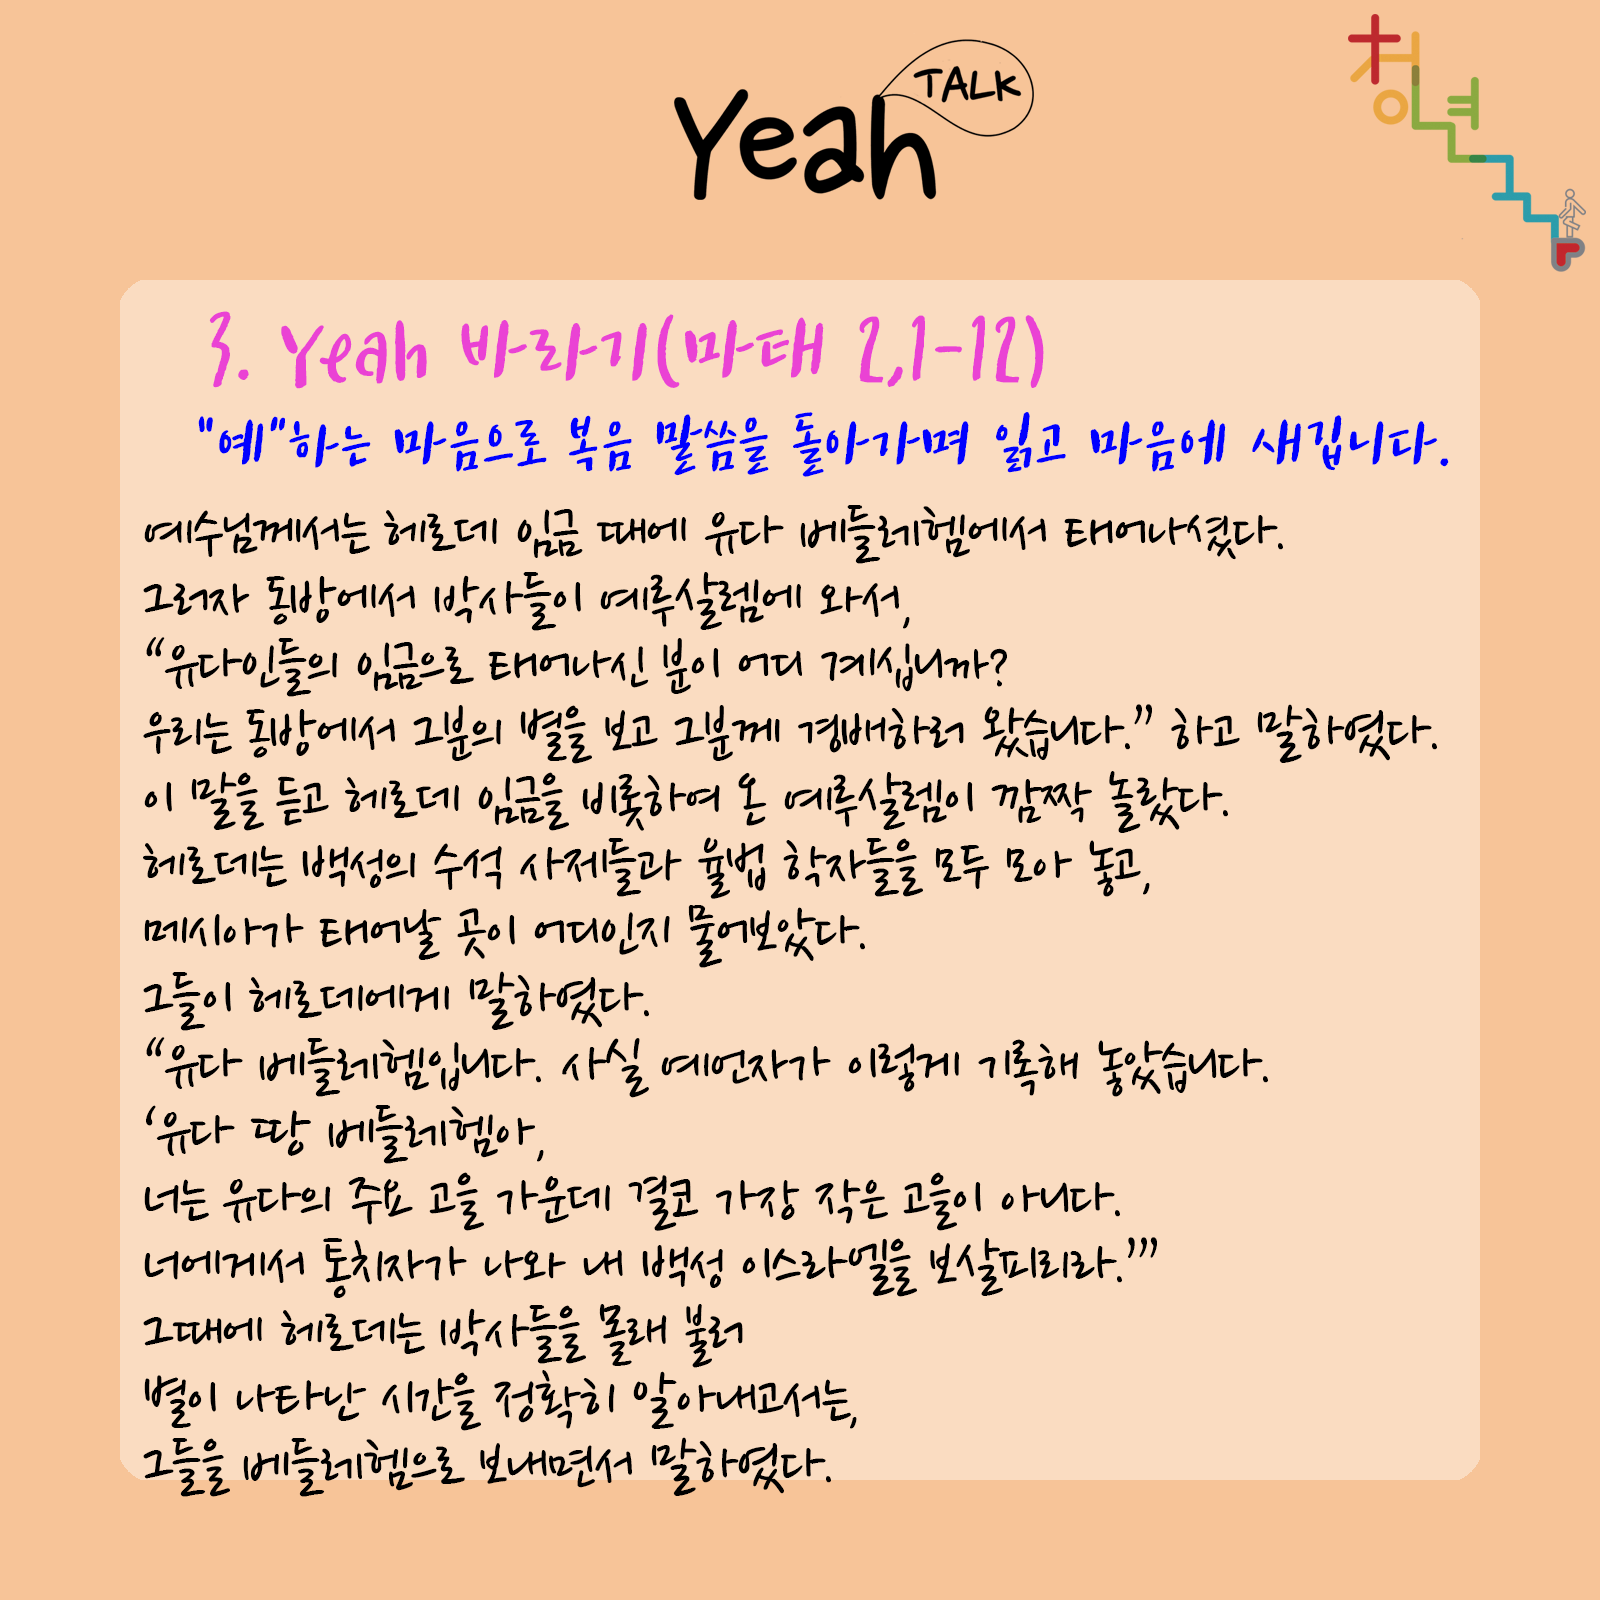 Yeah TALK
청년
3. Yeah 바라기(마태 2,1-12)
"예"하는 마음으로 복음 말씀을 돌아가며 읽고 마음에 새깁니다.
예수님께서는 헤로데 임금 때에 유다 베들레헴에서 태어나셨다.
그러자 동방에서 박사들이 예루살렘에 와서,
“유다인들의 임금으로 태어나신 분이 어디 계십니까?
우리는 동방에서 그분의 별을 보고 그분께 경배하러 왔습니다.” 하고 말하였다.
이 말을 듣고 헤로데 임금을 비롯하여 온 예루살렘이 깜짝 놀랐다.
헤로데는 백성의 수석 사제들과 율법 학자들을 모두 모아 놓고,
메시아가 태어날 곳이 어디인지 물어보았다.
그들이 헤로데에게 말하였다.
“유다 베들레헴입니다. 사실 예언자가 이렇게 기록해 놓았습니다.
‘유다 땅 베들레헴아,
너는 유다의 주요 고을 가운데 결코 가장 작은 고을이 아니다.
너에게서 통치자가 나와 내 백성 이스라엘을 보살피리라.’”
그때에 헤로데는 박사들을 몰래 불러
별이 나타난 시간을 정확히 알아내고서는,
그들을 베들레헴으로 보내면서 말하였다.